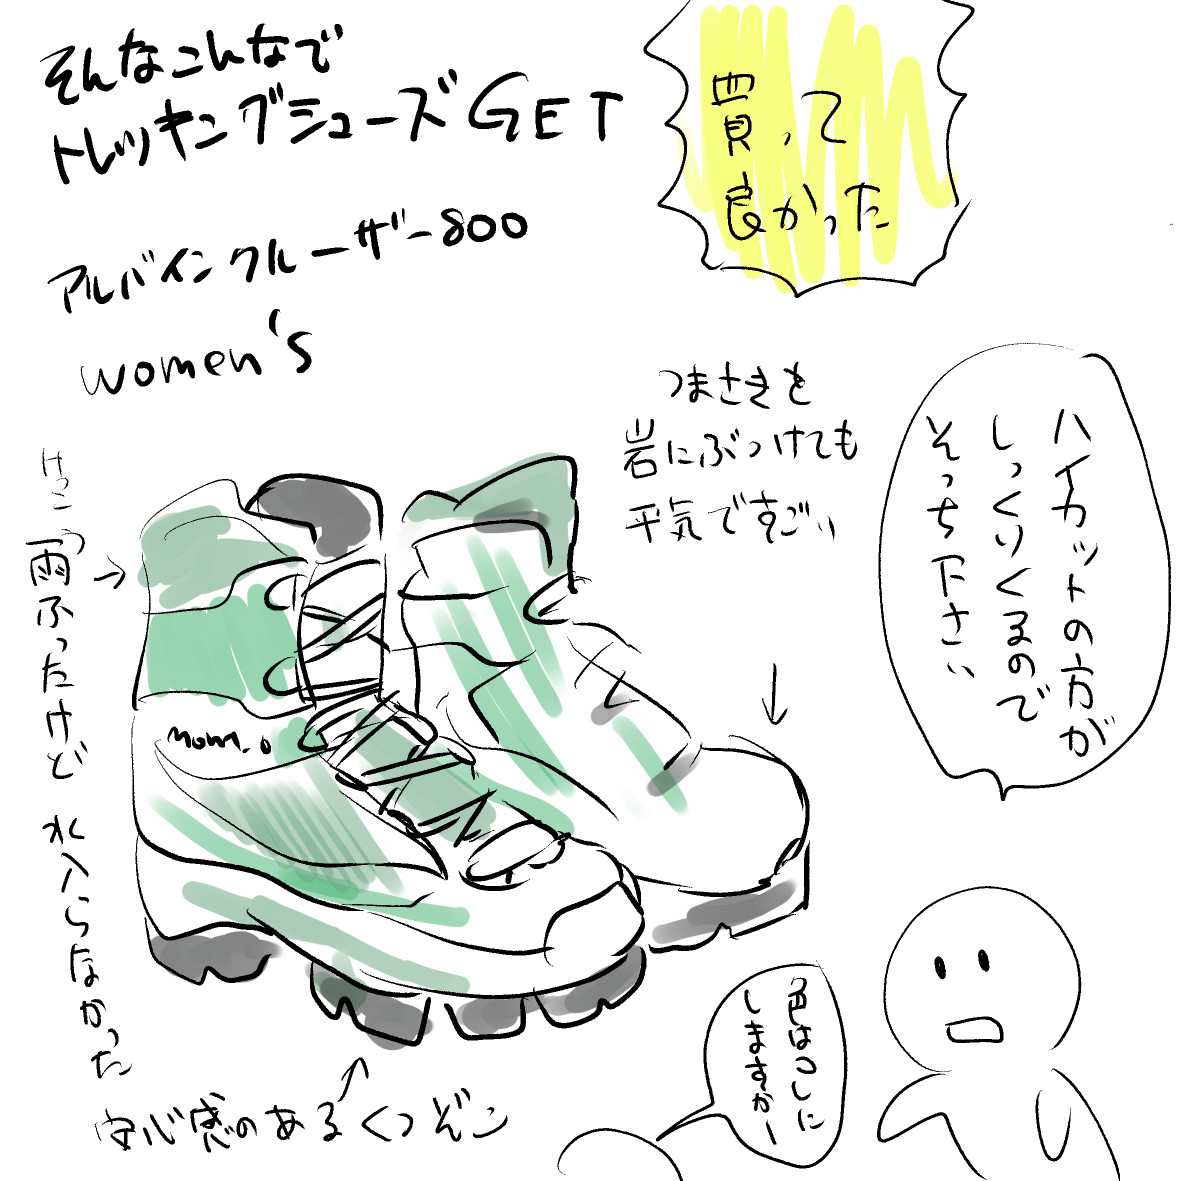 そんなこんなで
トレッキングシューズGET
買って
良かった
アルパインクルーザー800
women's
つまさきを
岩にぶつけても
平気ですごい
ハイカットの方が
しっくりくるので
そっち下さい
けっこう雨ふったけど 水入らなかった
色はコレに
しますかー
安心感のあるくつぞこ